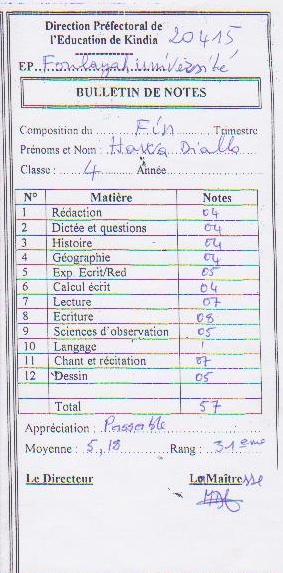 Direction Préfectoral de
l'Education de Kindia 20415
EP. Foulayah université
BULLETIN DE NOTES
Composition du Fin Trimestre
Prénoms et Nom : Hawa Diallo
Classe : 4 Année
N° Matière Notes
1 Rédaction 04
2 Dictée et questions 04
3 Histoire 04
4 Géographie 04
5 Exp. Ecrit/Red 05
6 Calcul écrit 04
7 Lecture 07
8 Ecriture 08
9 Sciences d'observation 05
10 Langage
11 Chant et récitation 07
12 Dessin 05
Total 57
Appréciation : Passable
Moyenne : 5,18 Rang : 31eme
Le Directeur La Maîtresse